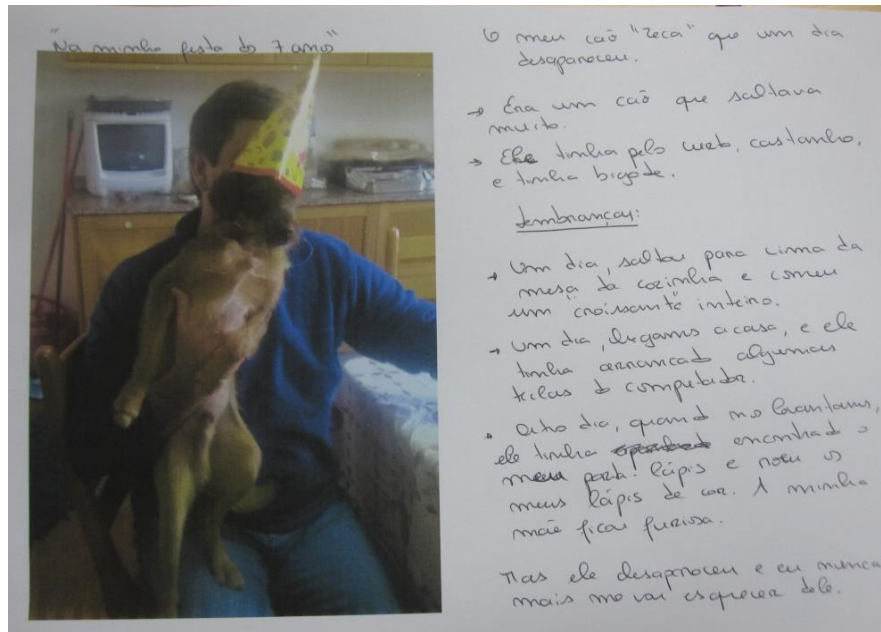 "Na minha festa do 7 anos"
O meu cão "Zeca" que um dia
desapareceu.
→ Era um cão que saltava
muito.
→ Ele tinha pelo curto, castanho,
e tinha bigode.
Lembranças:
→ Um dia, saltou para cima da
mesa da cozinha e comeu
um "croissant" inteiro.
→ Um dia, chegamos a casa, e ele
tinha arrancado algumas
teclas do computador.
• Outro dia, quando nos levantamos,
ele tinha encontrado o
meu porta-lápis e roeu os
meus lápis de cor. A minha
mãe ficou furiosa.
Mas ele desapareceu e eu nunca
mais me vou esquecer dele.